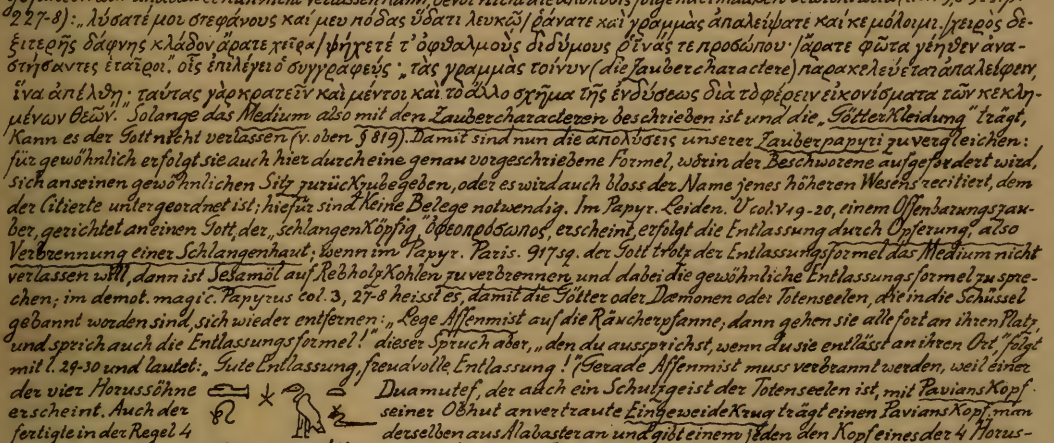 227-8): „λύσατέ μοι στεφάνους καί μευ πόδας ὕδατι λευκῶ / ῥάνατε καὶ γραμμὰς ἀπαλείψατε καί κε μόλοιμι. / χειρὸς δε-
ξιτερῆς δάφνης κλάδον ἄρατε χεῖρα / ψήχετέ τ' ὀφθαλμοὺς διδύμους ῥῖνάς τε προσώπου· / ἄρατε φῶτα γέηθεν ἀνα-
στήσαντες ἑταῖροι". οἷς ἐπιλέγει ὁ συγγραφεύς: „τὰς γραμμὰς τοίνυν (die Zaubercharactere) παρακελεύεται ἀπαλείφειν,
ἵνα ἀπέλθῃ· ταύτας γὰρ κρατεῖν καὶ μέντοι καὶ τὸ ἄλλο σχῆμα τῆς ἐνδύσεως διὰ τὸ φέρειν εἰκονίσματα τῶν κεκλη-
μένων θεῶν." Solange das Medium also mit den Zaubercharacteren beschrieben ist und die „Götterkleidung" trägt,
Kann es der Gott nicht verlassen (v. oben § 819). Damit sind nun die ἀπολύσεις unserer Zauberpapyri zu vergleichen:
für gewöhnlich erfolgt sie auch hier durch eine genau vorgeschriebene Formel, worin der Beschworene aufgefordert wird,
sich an seinen gewöhnlichen Sitz zurückzubegeben, oder es wird auch bloss der Name jenes höheren Wesens recitiert, dem
der Citierte untergeordnet ist; hiefür sind keine Belege notwendig. Im Papyr. Leiden. V col. V 19-20, einem Offenbarungszau-
ber, gerichtet an einen Gott, der „schlangenköpfig" ὀφεοπρόσωπος, erscheint, erfolgt die Entlassung durch Opferung, also
Verbrennung einer Schlangenhaut; wenn im Papyr. Paris. 917 sq. der Gott trotz der Entlassungsformel das Medium nicht
verlassen will, dann ist Sesamöl auf Rebholzkohlen zu verbrennen und dabei die gewöhnliche Entlassungsformel zu spre-
chen; im demot. magic. Papyrus col. 3, 27-8 heisst es, damit die Götter oder Dæmonen oder Totenseelen, die in die Schüssel
gebannt worden sind, sich wieder entfernen: „Lege Affenmist auf die Räucherpfanne; dann gehen sie alle fort an ihren Platz,
und sprich auch die Entlassungsformel!" dieser Spruch aber, „den du aussprichst, wenn du sie entlässt an ihren Ort" folgt
mit l. 29-30 und lautet: „Gute Entlassung, freudvolle Entlassung!" (Gerade Affenmist muss verbrannt werden, weil einer
der vier Horussöhne Duamutef, der auch ein Schutzgeist der Totenseelen ist, mit Pavianskopf
erscheint. Auch der seiner Obhut anvertraute Eingeweidekrug trägt einen Pavianskopf; man
fertigte in der Regel 4 derselben aus Alabaster an und gibt einem jeden den Kopf eines der 4 Horus-